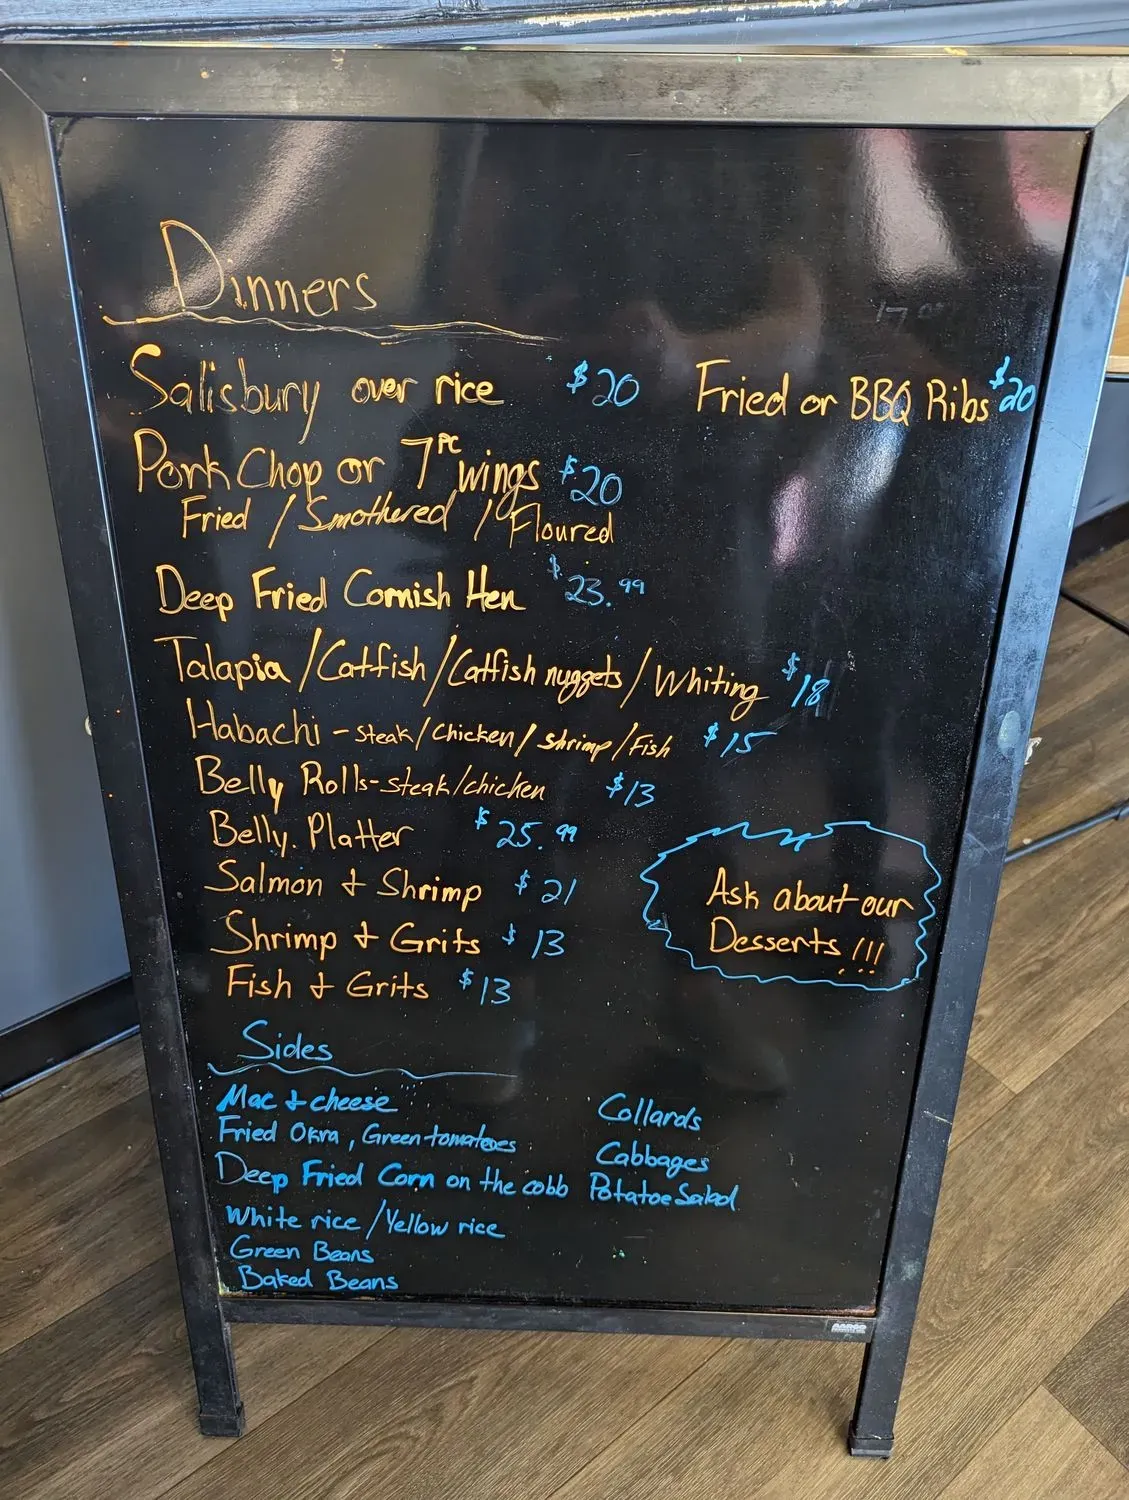 Dinners
Salisbury over rice $20
Fried or BBQ Ribs $20
Pork Chop or 7pc wings $20
Fried / Smothered / Floured
Deep Fried Cornish Hen $23.99
Talapia / Catfish / Catfish nuggets / Whiting $18
Habachi - steak / chicken / shrimp / Fish $15
Belly Rolls - steak/chicken $13
Belly. Platter $25.99
Salmon + Shrimp $21
Shrimp + Grits $13
Fish + Grits $13
Ask about our
Desserts!!!
Sides
Mac + cheese
Fried Okra, Green tomatoes
Deep Fried Corn on the cobb
White rice / Yellow rice
Green Beans
Baked Beans
Collards
Cabbages
Potatoe Salad